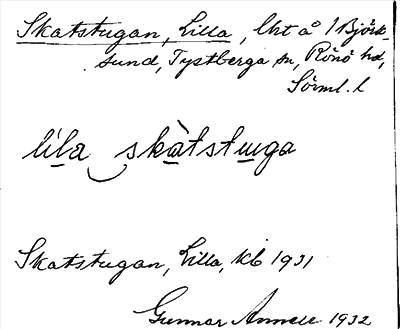 Skatstugan, Lilla, lht å / Björk-
sund, Tystberga sn, Rönö hd,
Sörml. l
lila skàtstuga
Skatstugan, Lilla, kb 1931
Gunnar Annell 1932